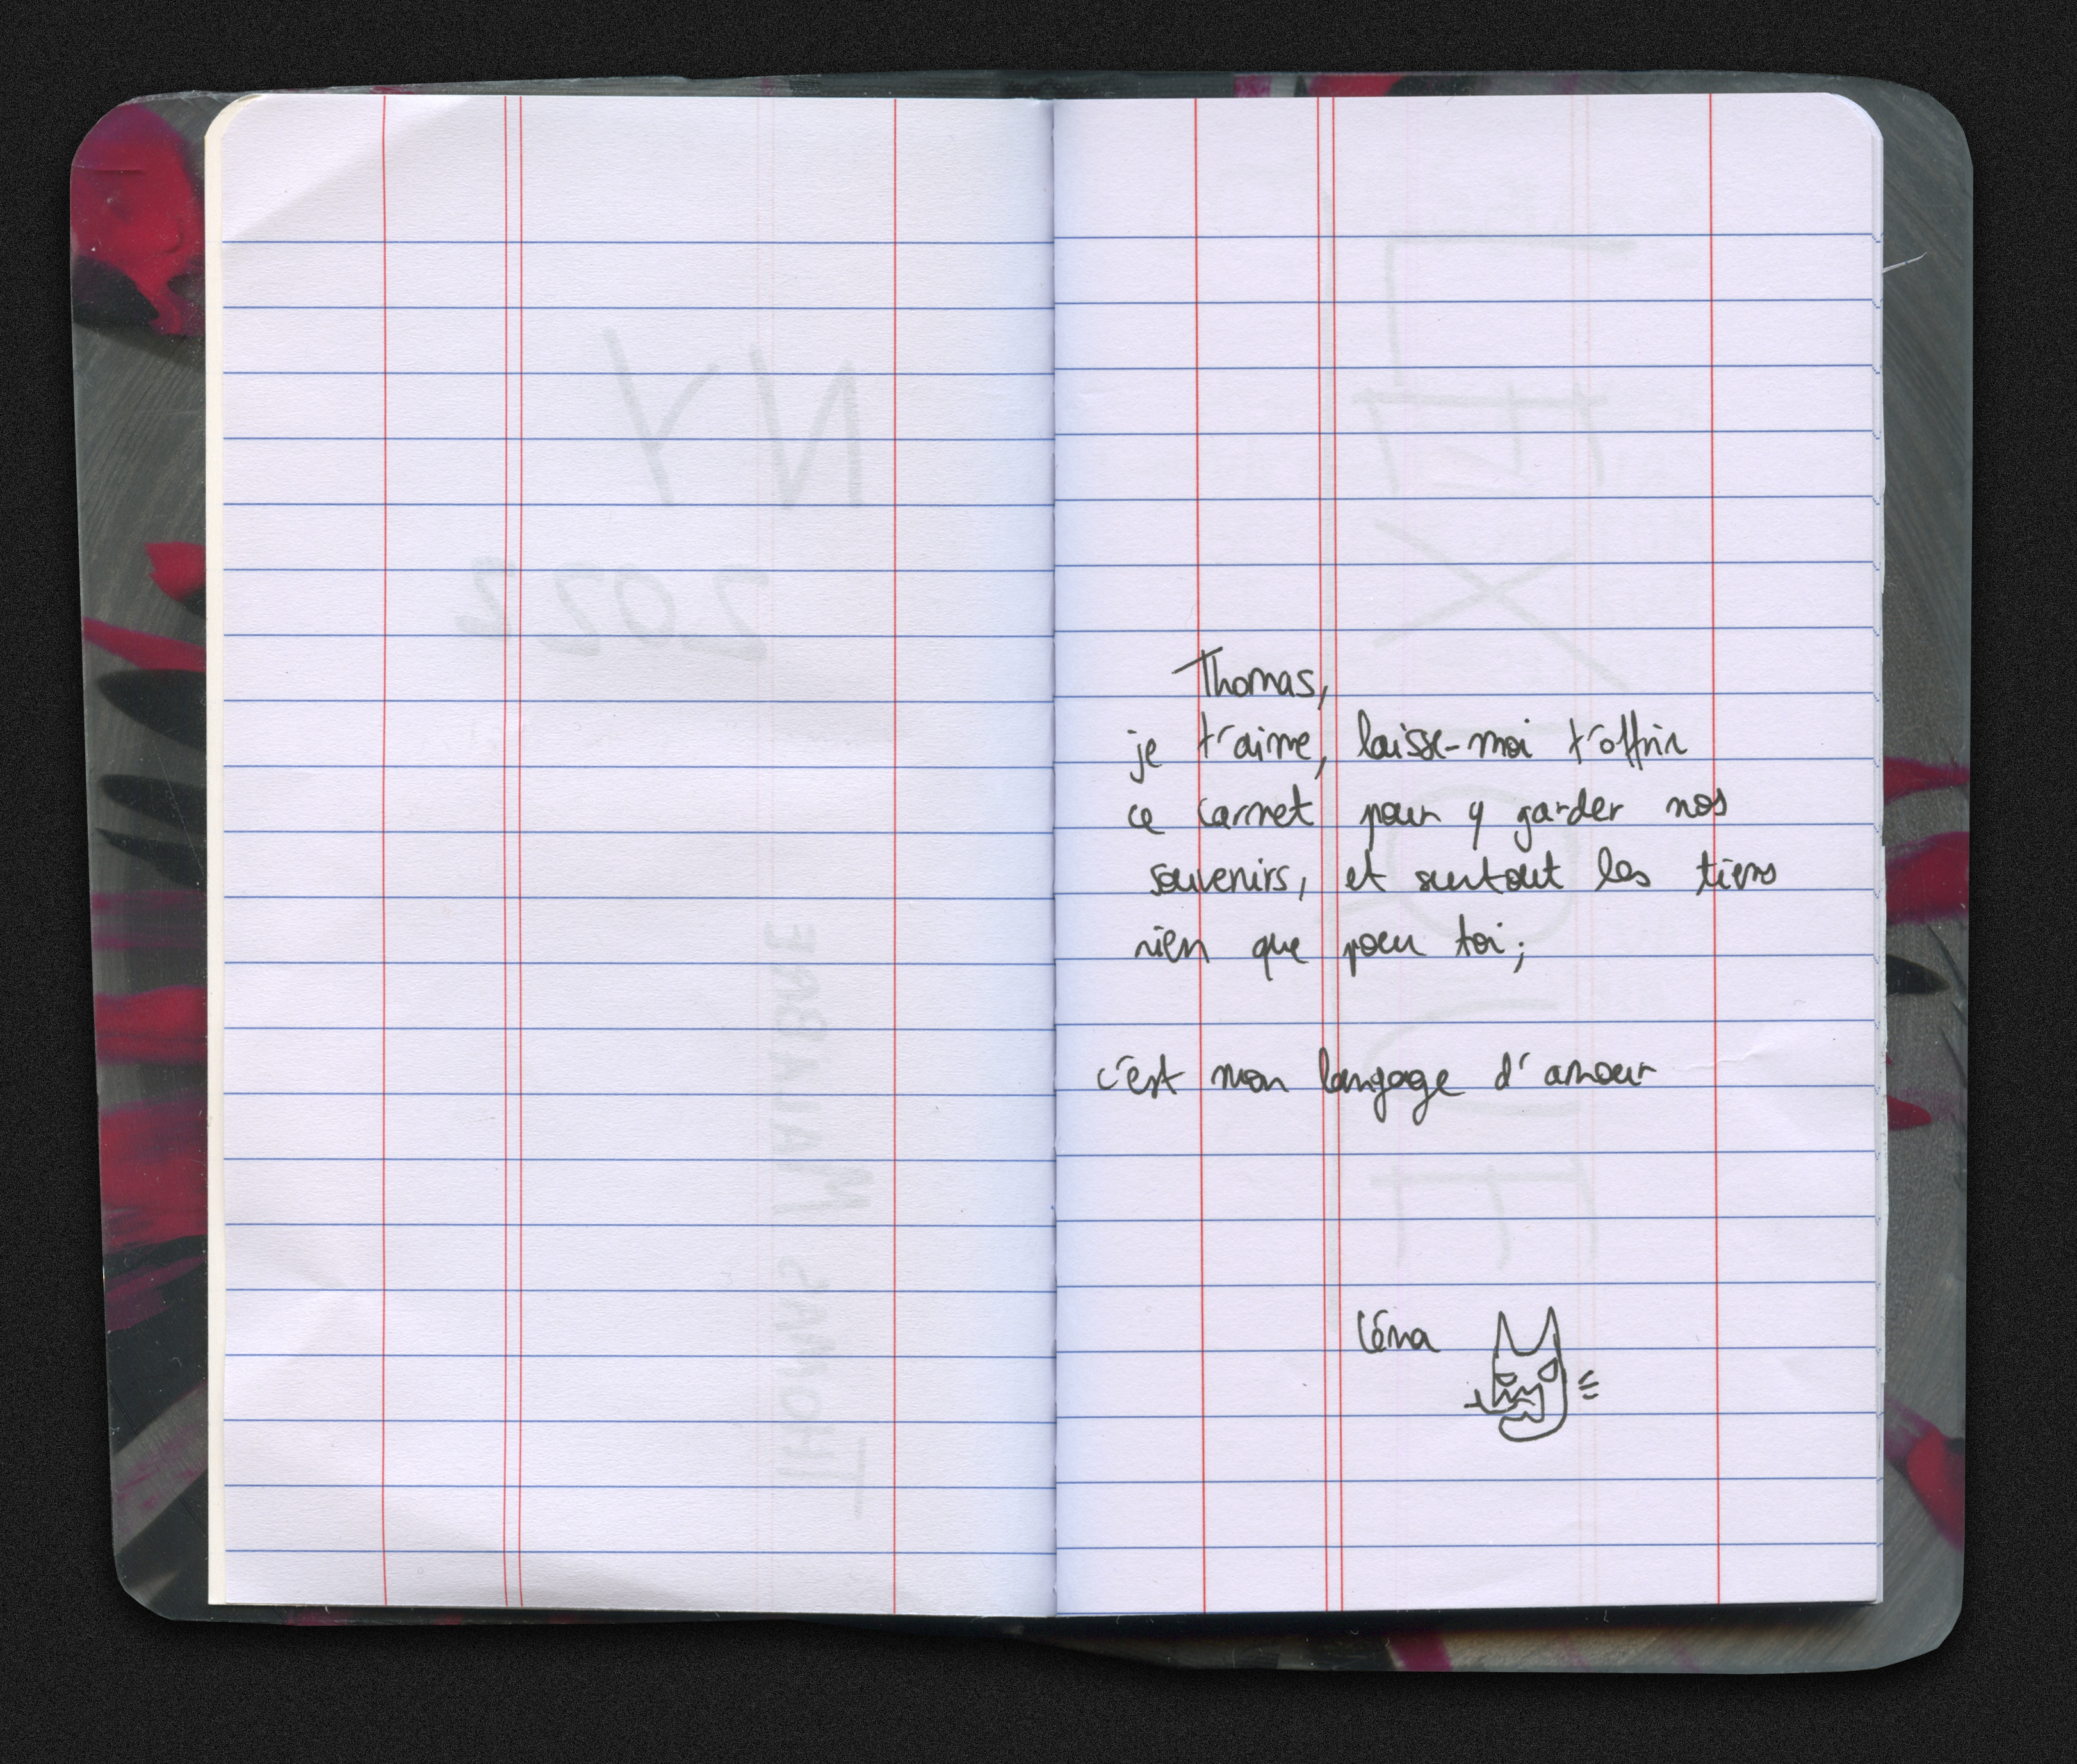 NY
2022
THOMAS MALABRE
Thomas,
je t'aime, laisse-moi t'offrir
ce carnet pour y garder nos
souvenirs, et surtout les tiens
rien que pour toi;
c'est mon langage d'amour
Léna